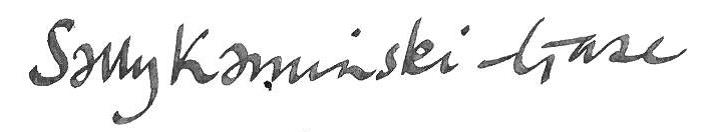 Sally Kaminski Gase